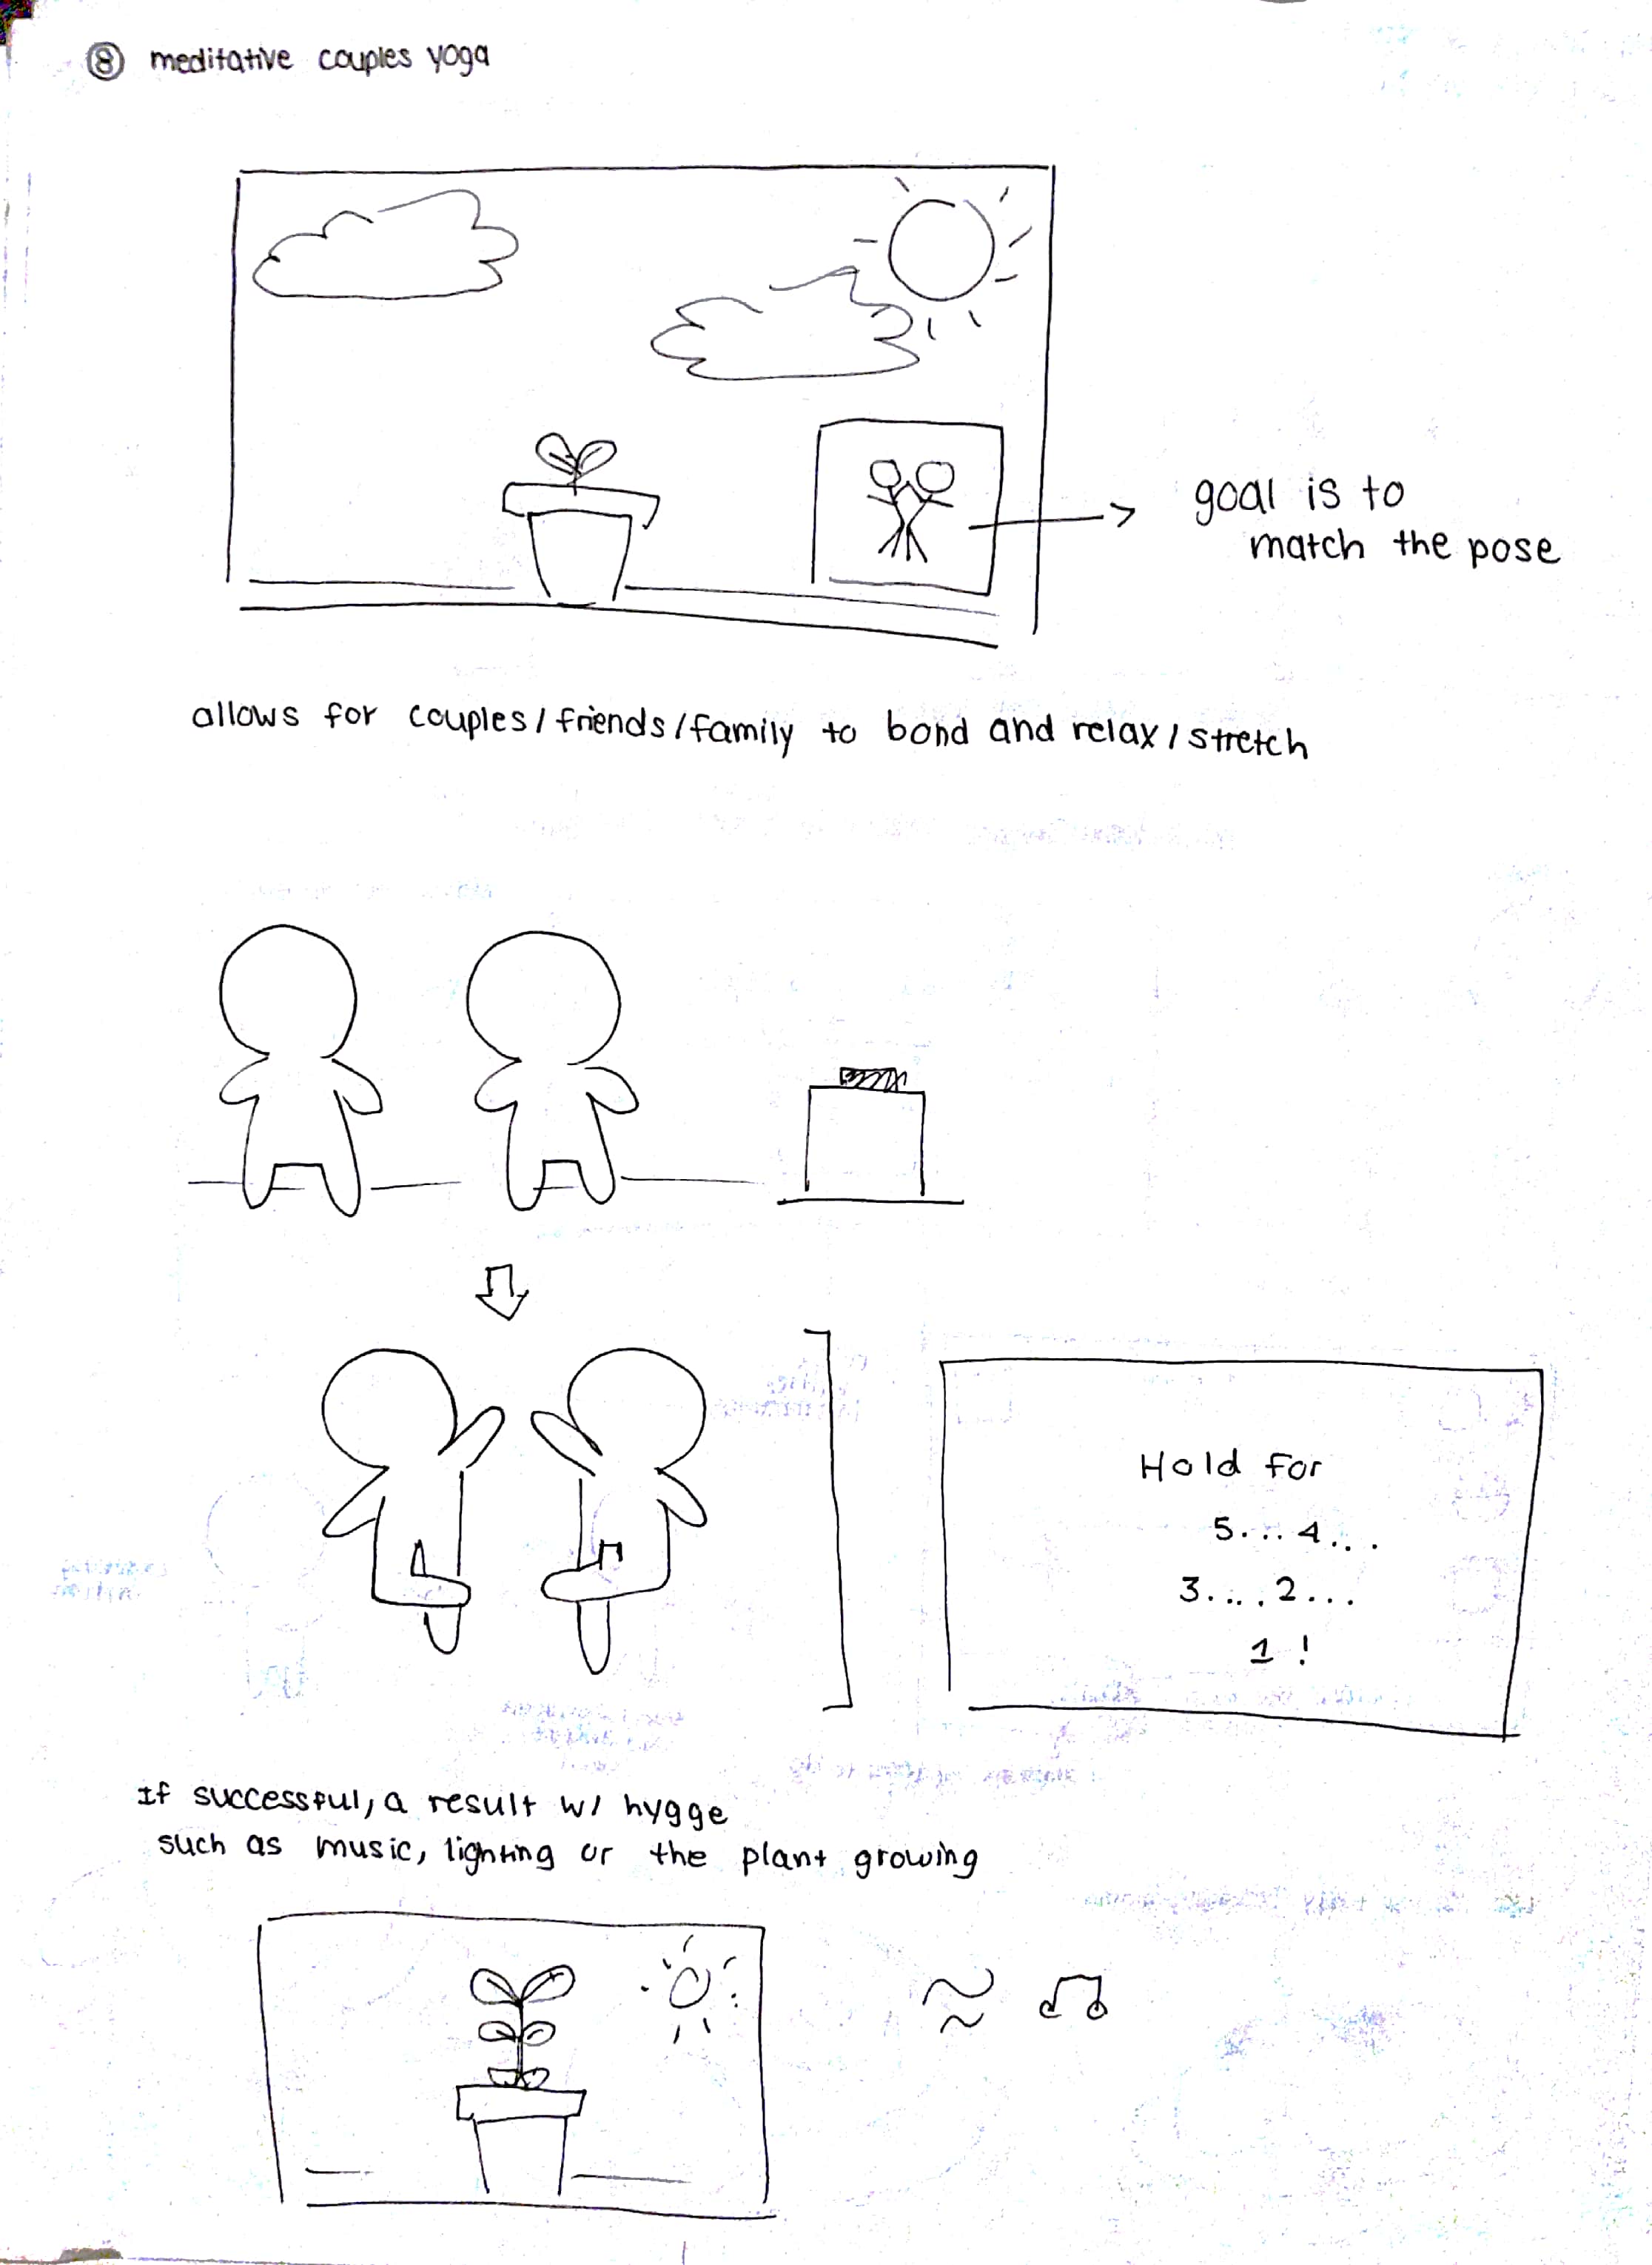 ⑧ meditative couples yoga
goal is to
match the pose
allows for couples/friends/family to bond and relax/stretch
Hold for
5... 4...
3.... 2...
1!
If successful, a result w/ hygge
such as music, lighting or the plant growing